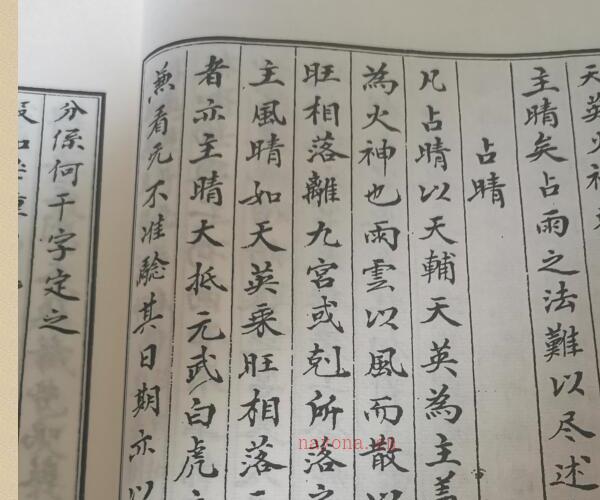 天英火神
主晴矣占雨之法難以尽述
占晴
凡占晴以天輔天英為主
為火神也雨雲以風而散以
旺相落離九宮或剋所落之
主風晴如天英乘旺相落
者亦主晴大抵元武白虎
兼看无不准驗其日期亦以
分係何干字定之